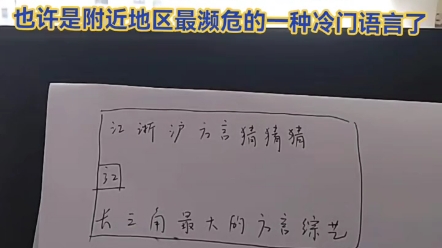 也许是附近地区最濒危的一种冷门语言了
江浙沪方言猜猜猜
江
长三角最大的方言综艺